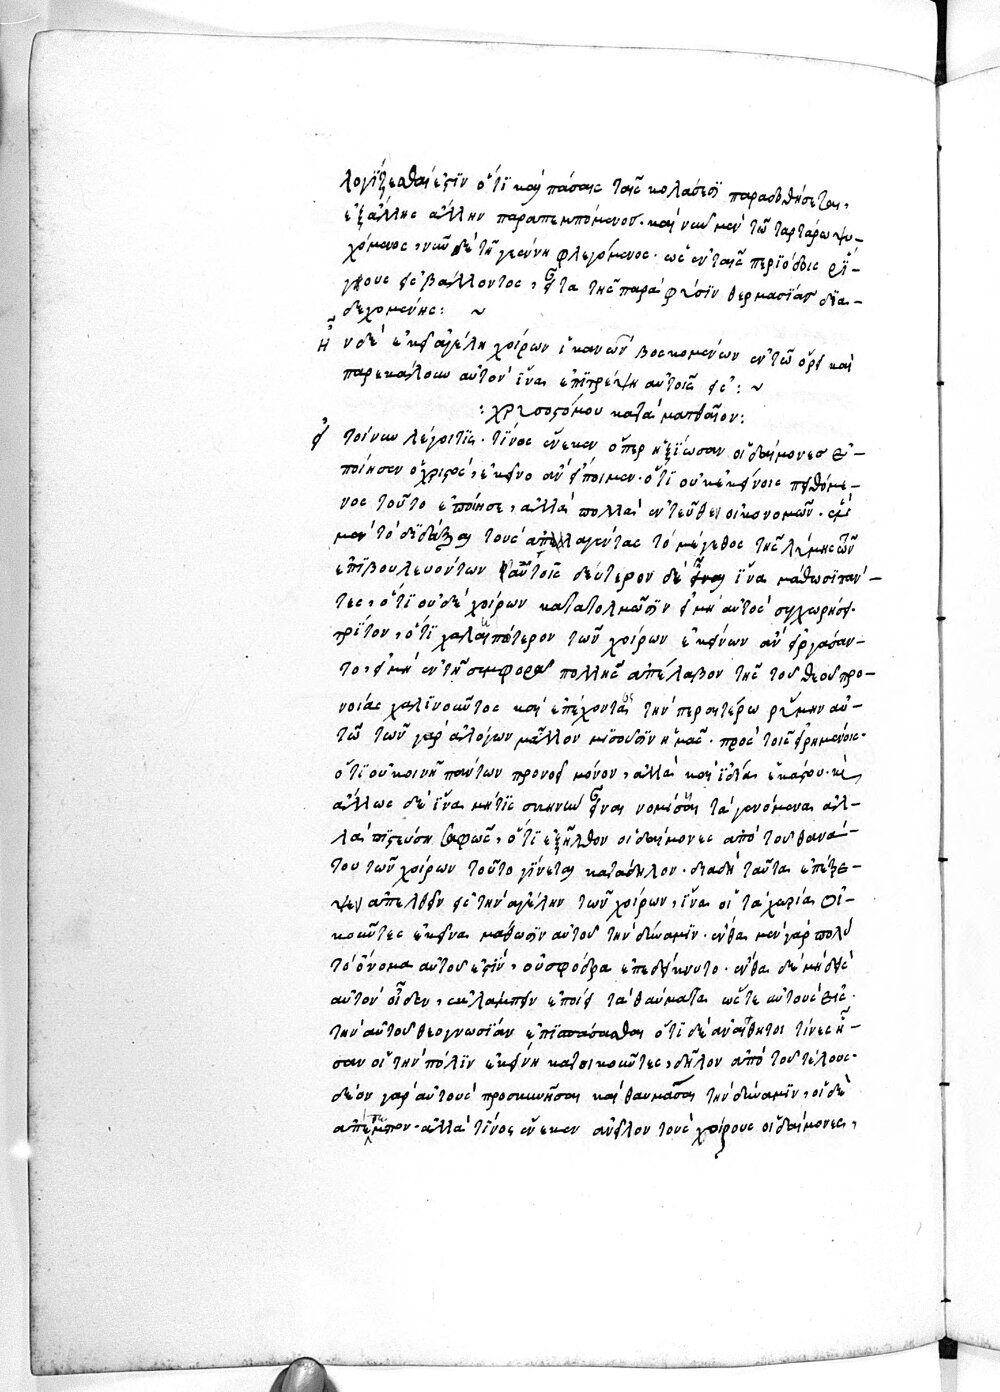 λογίζεσθαί ἐστιν ὅτι καὶ πάσαις ταῖς κολάσεσι παραδοθήσεται,
ἐξ ἄλλης ἄλλην παραπεμπόμενος· καὶ νῦν μὲν τῷ ταρτάρῳ ψυ-
χόμενος, νῦν δὲ τῇ γεέννῃ φλεγόμενος· ὡς ἐν ταῖς περιόδοις ῥί-
γους εἰσβάλλοντος, εἶτα τῆς παρὰ φύσιν θερμασίας δια-
δεχομένης: ~
Ἦν δὲ ἐκεῖ ἀγέλη χοίρων ἱκανῶν βοσκομένων ἐν τῷ ὄρει καὶ
παρεκάλουν αὐτὸν ἵνα ἐπιτρέψῃ αὐτοῖς εἰς: ~
: χρυσοστόμου κατὰ ματθαῖον:
εἰ τοίνυν λέγοι τις· τίνος ἕνεκεν ὅπερ ἠξίωσαν οἱ δαίμονες ἐ-
ποίησεν ὁ χριστὸς, ἐκεῖνο ἂν εἴποιμεν· ὅτι οὐκ ἐκείνοις πειθόμε-
νος τοῦτο ἐποίησε, ἀλλὰ πολλὰ ἐντεῦθεν οἰκονομῶν· ἓν
μὲν τὸ διδάξαι τοὺς ἀπαλλαγέντας τὸ μέγεθος τῆς λύμης τῶν
ἐπιβουλευόντων αὐτοῖς δεύτερον δὲ εἶναι ἵνα μάθωσι πάν-
τες, ὅτι οὐδὲ χοίρων κατατολμῶσιν εἰ μὴ αὐτὸς συγχωρήσει·
τρίτον, ὅτι χαλεπώτερον τῶν χοίρων ἐκείνων ἂν εἰργάσαν-
το, εἰ μὴ ἐν τῇ συμφορᾷ πολλῆς ἀπέλαβον τῆς τοῦ θεοῦ προ-
νοίας χαλινούσης καὶ ἐπεχούσης τὴν περαιτέρω ῥύμην αὐ-
τῶ τῶν γὰρ ἀλόγων μᾶλλον μισοῦσιν ἡμᾶς· πρὸς τοῖς εἰρημένοις·
ὅτι οὐ κοινῇ πάντων προνοεῖ μόνον, ἀλλὰ καὶ ἰδίᾳ ἑκάστου· καὶ
ἄλλως δὲ ἵνα μή τις σκηνὴν εἶναι νομίσῃ τὰ γενόμενα ἀλ-
λὰ πιστεύσῃ σαφῶς, ὅτι ἐξῆλθον οἱ δαίμονες ἀπὸ τοῦ θανά-
του τῶν χοίρων τοῦτο γίνεται κατάδηλον· διὰ δὴ ταῦτα ἐπέτρε-
ψεν ἀπελθεῖν εἰς τὴν ἀγέλην τῶν χοίρων, ἵνα οἱ τὰ χωρία οἰ-
κοῦντες ἐκεῖνα μάθωσιν αὐτοῦ τὴν δύναμιν· ἔνθα μὲν γὰρ πολὺ
τὸ ὄνομα αὐτοῦ ἐστίν, οὐ σφόδρα ἐπεδείκνυτο· ἔνθα δὲ μηδεὶς
αὐτὸν οἶδεν, ἐκλάμπειν ἐποίει τὰ θαύματα ὥστε αὐτοὺς εἰς·
τὴν αὐτοῦ θεογνωσίαν ἐπισπάσασθαι ὅτι δὲ ἀναίσθητοι τινες ἦ-
σαν οἱ τὴν πόλιν ἐκείνην κατοικοῦντες, δῆλον ἀπὸ τοῦ τέλους·
δέον γὰρ αὐτοὺς προσκυνῆσαι καὶ θαυμᾶσαι τὴν δύναμιν, οἱ δὲ
ἀπέπεμπον· ἀλλὰ τίνος ἕνεκεν ἀνεῖλον τοὺς χοίρους οἱ δαίμονες,